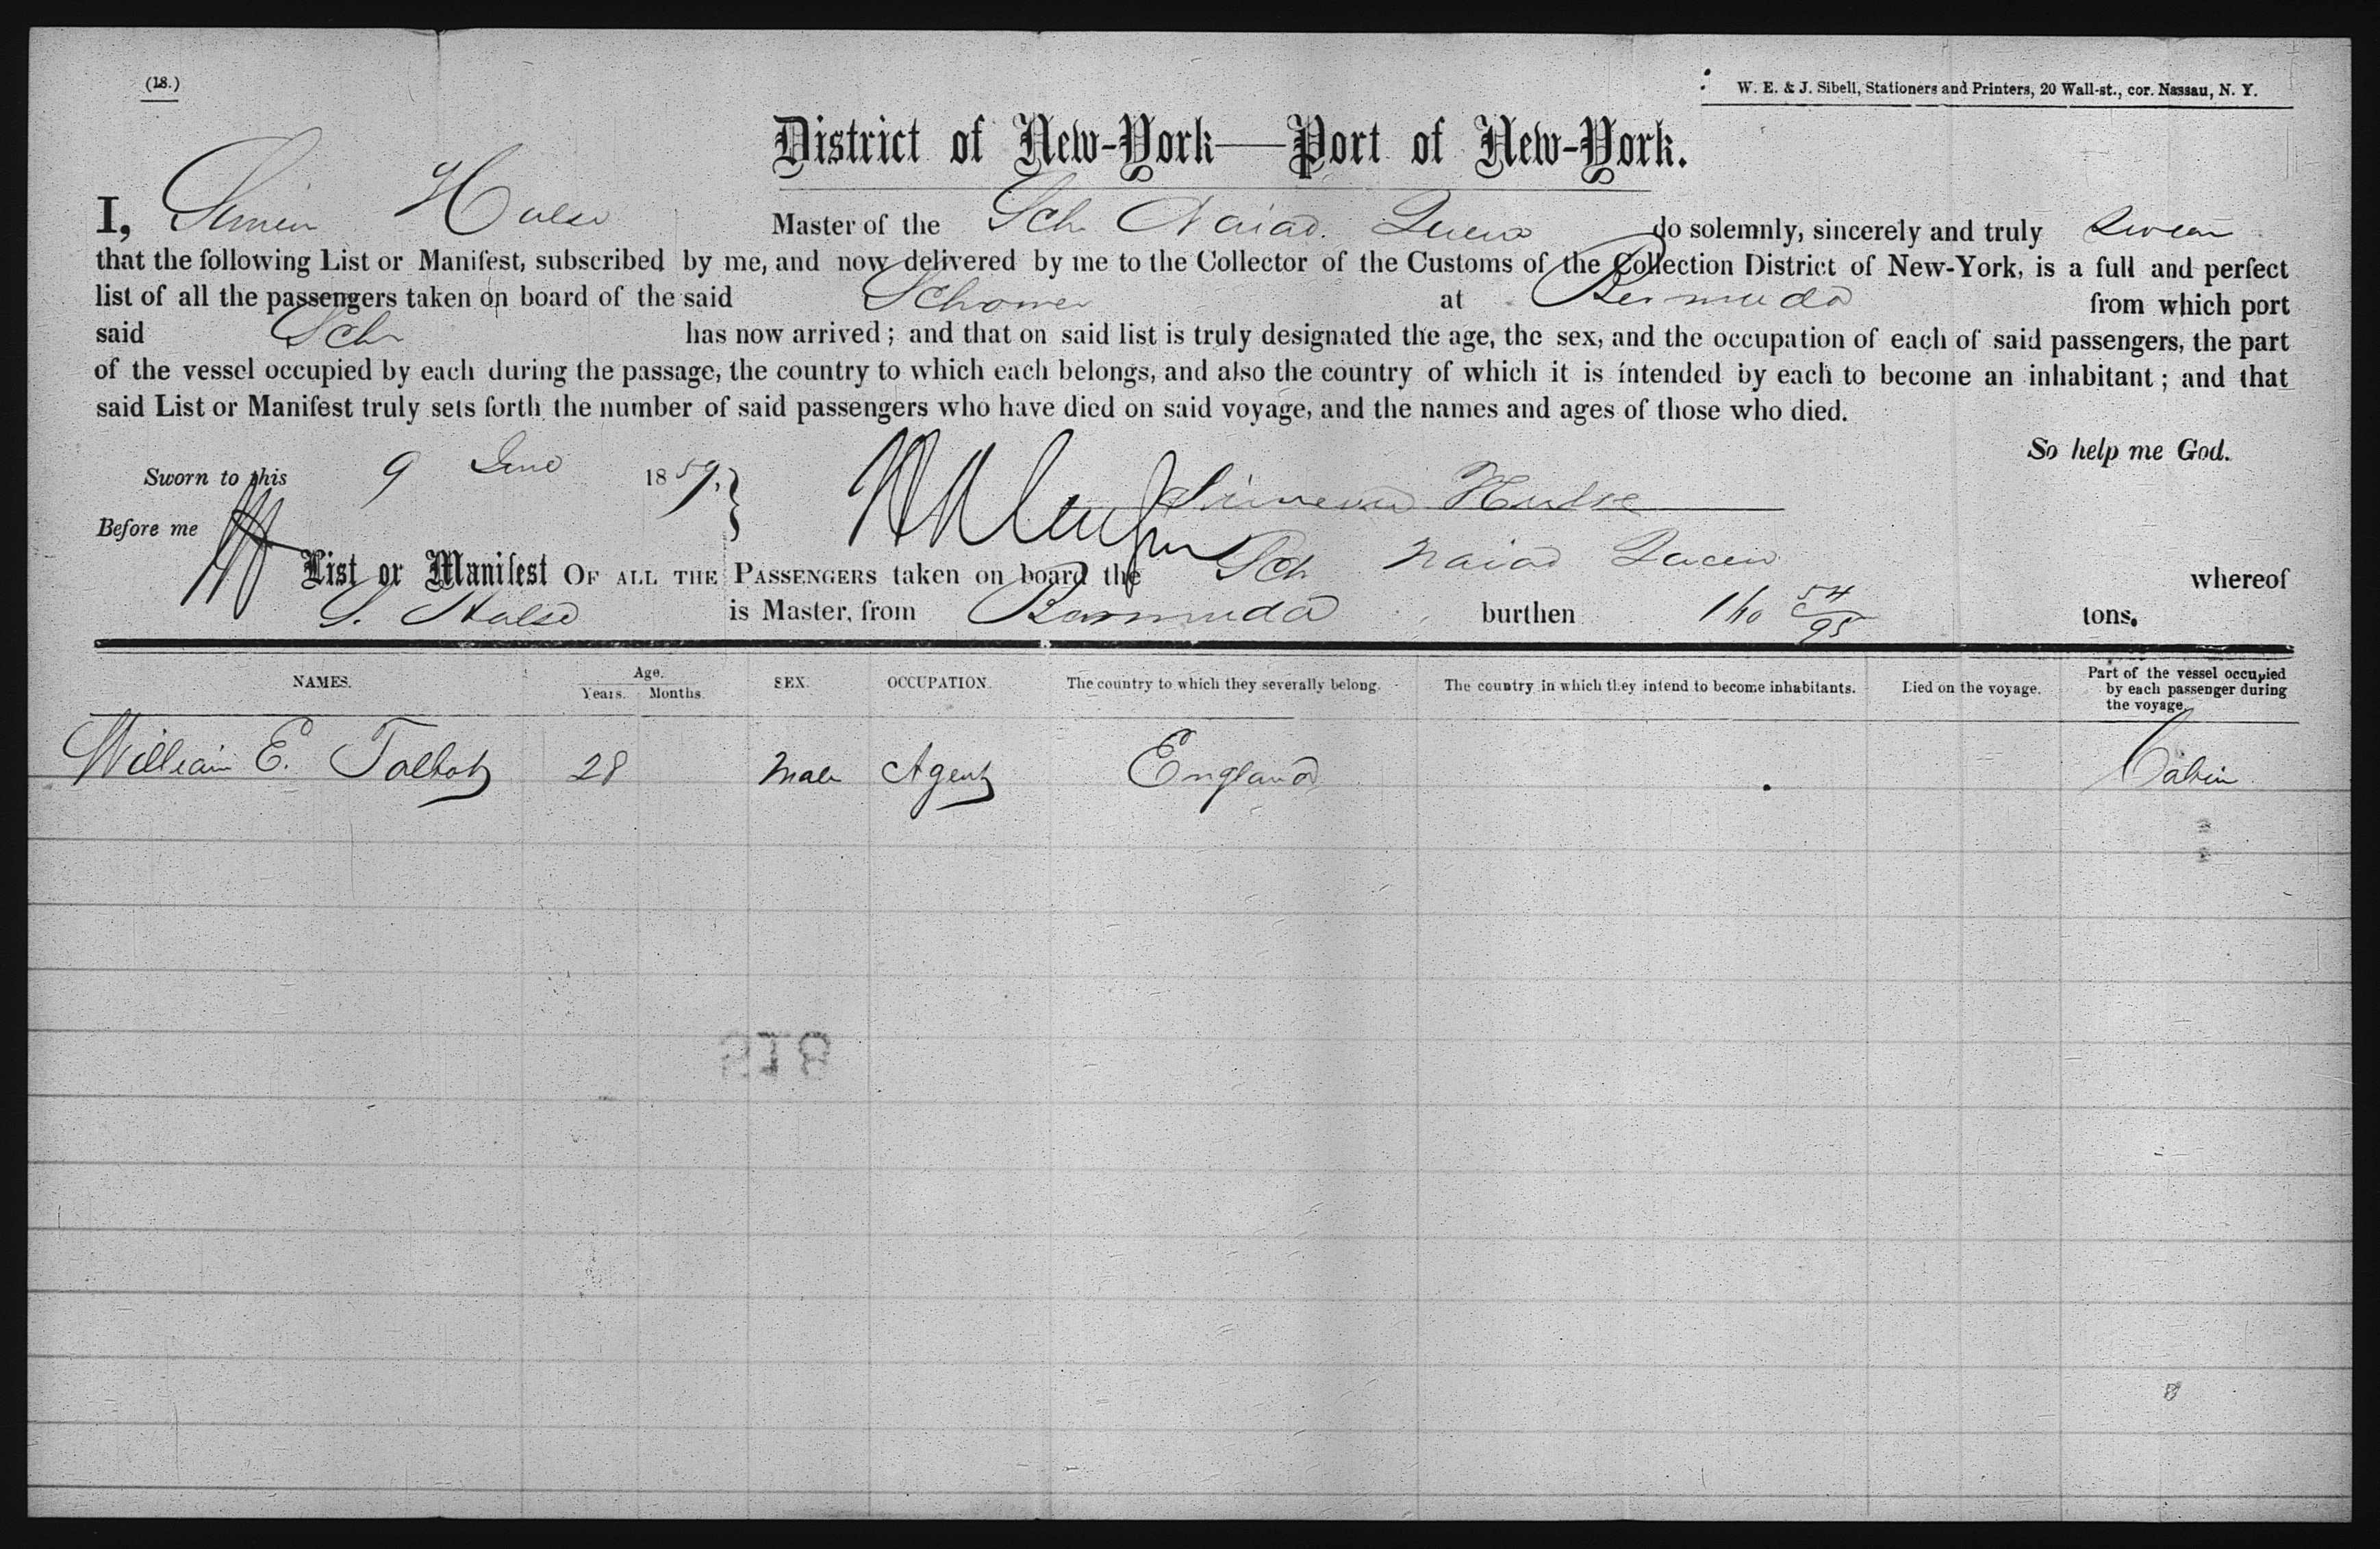 (18.)
W. E. & J. Sibell, Stationers and Printers, 20 Wall-st., cor. Nassau, N. Y.
District of New-York—Port of New-York.
I, Simeon Hulse Master of the Sch Naiad Queen do solemnly, sincerely and truly Swear
that the following List or Manifest, subscribed by me, and now delivered by me to the Collector of the Customs of the Collection District of New-York, is a full and perfect
list of all the passengers taken on board of the said Schooner at Bermuda from which port
said Sch has now arrived; and that on said list is truly designated the age, the sex, and the occupation of each of said passengers, the part
of the vessel occupied by each during the passage, the country to which each belongs, and also the country of which it is intended by each to become an inhabitant; and that
said List or Manifest truly sets forth the number of said passengers who have died on said voyage, and the names and ages of those who died.
So help me God.
Sworn to this 9 June 1859. Simeon Hulse
Before me
List or Manifest OF ALL THE PASSENGERS taken on board the Sch Naiad Queen whereof
S. Hulse is Master, from Bermuda burthen 160 54/95 tons.
NAMES. Age. Years. Months. SEX. OCCUPATION. The country to which they severally belong. The country in which they intend to become inhabitants. Died on the voyage. Part of the vessel occupied by each passenger during the voyage.
William E. Talbot 28 Male Agent England Cabin